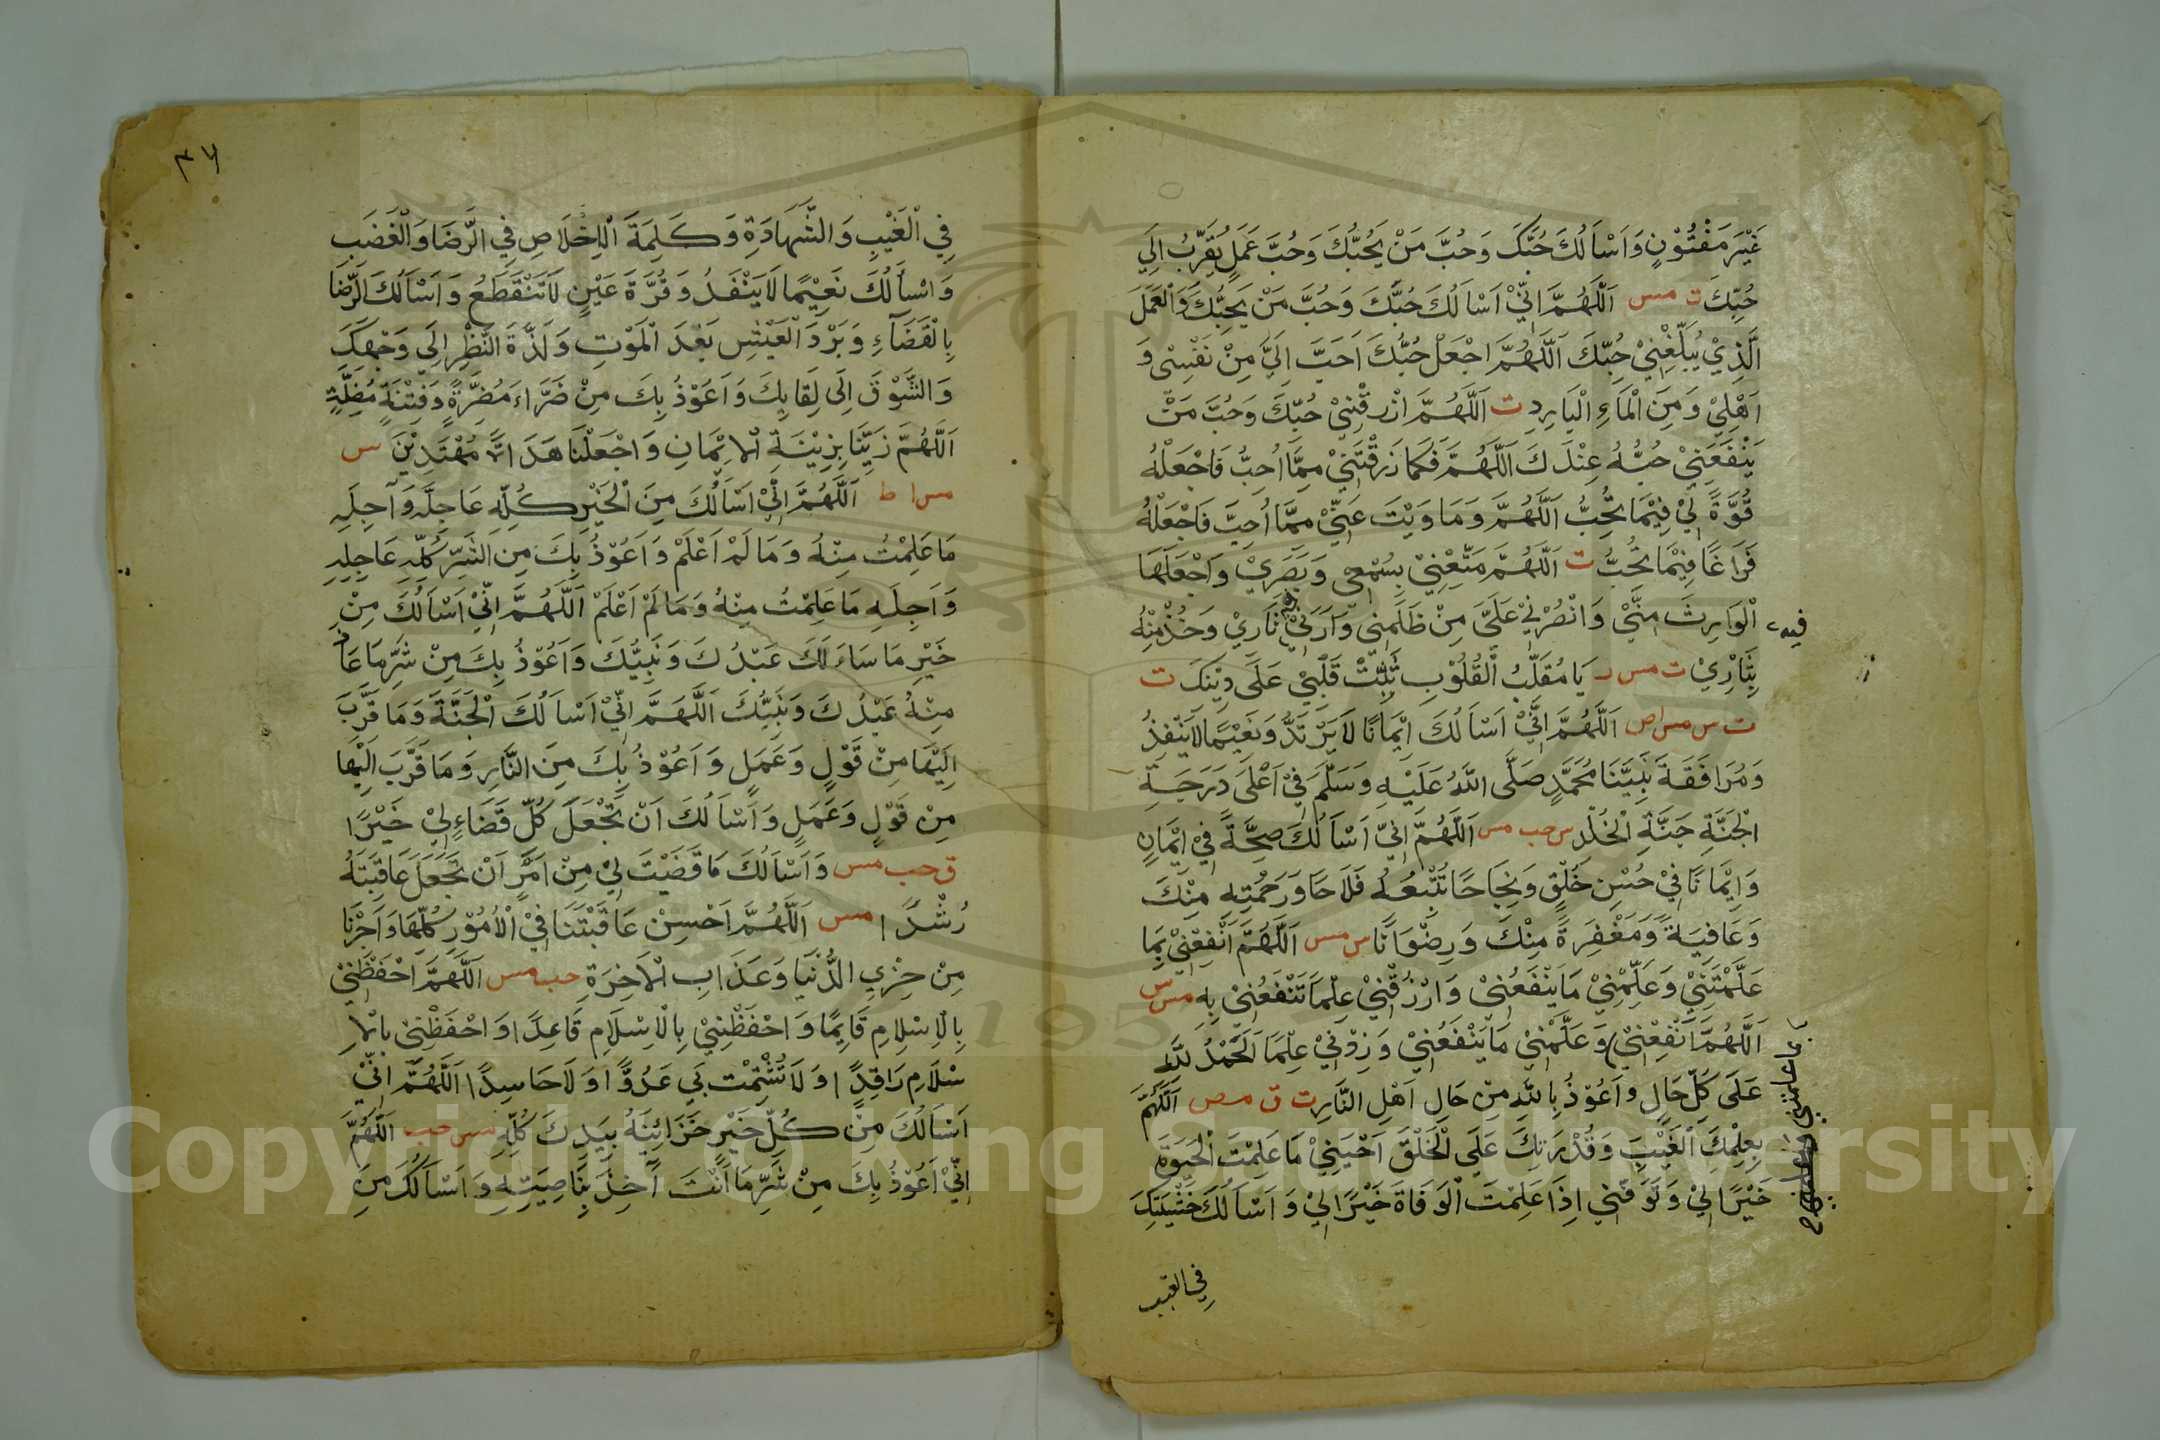 غَيْرَ مَفْتُوْنٍ وَاَسْاَلُكَ حُبَّكَ وَحُبَّ مَنْ يُحِبُّكَ وَحُبَّ عَمَلٍ يُقَرِّبُ اِلَي
حُبِّكَ ت مس اَللّٰهُمَّ اِنِّيْ اَسْاَلُكَ حُبَّكَ وَحُبَّ مَنْ يُحِبُّكَ وَالْعَمَلَ
الَّذِيْ يُبَلِّغُنِيْ حُبَّكَ اَللّٰهُمَّ اجْعَلْ حُبَّكَ اَحَبَّ اِلَيَّ مِنْ نَفْسِيْ وَ
اَهْلِيْ وَمِنَ الْمَاءِ الْبَارِدِ ت اَللّٰهُمَّ ارْزُقْنِيْ حُبَّكَ وَحُبَّ مَنْ
يَنْفَعُنِيْ حُبُّهُ عِنْدَكَ اَللّٰهُمَّ فَكَمَا رَزَقْتَنِيْ مِمَّا اُحِبُّ فَاجْعَلْهُ
قُوَّةً لِيْ فِيْمَا تُحِبُّ اَللّٰهُمَّ وَمَا زَوَيْتَ عَنِّيْ مِمَّا اُحِبُّ فَاجْعَلْهُ
فَرَاغًا فِيْمَا تُحِبُّ ت اَللّٰهُمَّ مَتِّعْنِيْ بِسَمْعِيْ وَبَصَرِيْ وَاجْعَلْهَا
الْوَارِثَ مِنِّيْ وَانْصُرْنِيْ عَلَى مَنْ ظَلَمَنِيْ وَاَرِنِيْ ثَارِيْ وَخُذْ مِنْهُ
فيه
بِثَارِيْ ت مس ر يَا مُقَلِّبَ الْقُلُوْبِ ثَبِّتْ قَلْبِيْ عَلَى دِيْنِكَ ت
ت س مس اص اَللّٰهُمَّ اِنِّيْ اَسْاَلُكَ اِيْمَانًا لَا يَرْتَدُّ وَنَعِيْمًا لَا يَنْفَدُ
وَمُرَافَقَةَ نَبِيِّنَا مُحَمَّدٍ صَلَّى اللّٰهُ عَلَيْهِ وَسَلَّمَ فِيْ اَعْلَى دَرَجَةِ
الْجَنَّةِ جَنَّةِ الْخُلْدِ س حب مس اَللّٰهُمَّ اِنِّيْ اَسْاَلُكَ صِحَّةً فِيْ اِيْمَانٍ
وَاِيْمَانًا فِيْ حُسْنِ خُلُقٍ وَنَجَاحًا تُتْبِعُهُ فَلَاحًا وَرَحْمَةً مِنْكَ
وَعَافِيَةً وَمَغْفِرَةً مِنْكَ وَرِضْوَانًا س مس اَللّٰهُمَّ انْفَعْنِيْ بِمَا
عَلَّمْتَنِيْ وَعَلِّمْنِيْ مَا يَنْفَعُنِيْ وَارْزُقْنِيْ عِلْمًا تَنْفَعُنِيْ بِهِ مس س
اَللّٰهُمَّ انْفَعْنِيْ وَعَلِّمْنِيْ مَا يَنْفَعُنِيْ وَزِدْنِيْ عِلْمًا اَلْحَمْدُ لِلّٰهِ
بما علمتني
عَلَى كُلِّ حَالٍ وَاَعُوْذُ بِاللّٰهِ مِنْ حَالِ اَهْلِ النَّارِ ت ق مص اَللّٰهُمَّ
بِعِلْمِكَ الْغَيْبَ وَقُدْرَتِكَ عَلَى الْخَلْقِ اَحْيِنِيْ مَا عَلِمْتَ الْحَيٰوةَ
خَيْرًا لِيْ وَتَوَفَّنِيْ اِذَا عَلِمْتَ الْوَفَاةَ خَيْرًا لِيْ وَاَسْاَلُكَ خَشْيَتَكَ
في الغيب
٣٦
فِي الْغَيْبِ وَالشَّهَادَةِ وَكَلِمَةَ الْاِخْلَاصِ فِي الرِّضَا وَالْغَضَبِ
وَاَسْاَلُكَ نَعِيْمًا لَا يَنْفَدُ وَقُرَّةَ عَيْنٍ لَا تَنْقَطِعُ وَاَسْاَلُكَ الرِّضَا
بِالْقَضَآءِ وَبَرْدَ الْعَيْشِ بَعْدَ الْمَوْتِ وَلَذَّةَ النَّظَرِ اِلَى وَجْهِكَ
وَالشَّوْقَ اِلَى لِقَايِكَ وَاَعُوْذُ بِكَ مِنْ ضَرَّاءَ مُضِرَّةٍ وَفِتْنَةٍ مُضِلَّةٍ
اَللّٰهُمَّ زَيِّنَّا بِزِيْنَةِ الْاِيْمَانِ وَاجْعَلْنَا هُدَاةً مُهْتَدِيْنَ س
مس ا ط اَللّٰهُمَّ اِنِّيْ اَسْاَلُكَ مِنَ الْخَيْرِ كُلِّهِ عَاجِلِهِ وَآجِلِهِ
مَا عَلِمْتُ مِنْهُ وَمَا لَمْ اَعْلَمْ وَاَعُوْذُ بِكَ مِنَ الشَّرِّ كُلِّهِ عَاجِلِهِ
وَاٰجِلِهِ مَا عَلِمْتُ مِنْهُ وَمَا لَمْ اَعْلَمْ اَللّٰهُمَّ اِنِّيْ اَسْاَلُكَ مِنْ
خَيْرِ مَا سَاَلَكَ عَبْدُكَ وَنَبِيُّكَ وَاَعُوْذُ بِكَ مِنْ شَرِّ مَا عَاذَ
مِنْهُ عَبْدُكَ وَنَبِيُّكَ اَللّٰهُمَّ اِنِّيْ اَسْاَلُكَ الْجَنَّةَ وَمَا قَرَّبَ
اِلَيْهَا مِنْ قَوْلٍ وَعَمَلٍ وَاَعُوْذُ بِكَ مِنَ النَّارِ وَمَا قَرَّبَ اِلَيْهَا
مِنْ قَوْلٍ وَعَمَلٍ وَاَسْاَلُكَ اَنْ تَجْعَلَ كُلَّ قَضَاءٍ لِيْ خَيْرًا
ق حب مس وَاَسْاَلُكَ مَا قَضَيْتَ لِيْ مِنْ اَمْرٍ اَنْ تَجْعَلَ عَاقِبَتَهُ
رُشْدًا مس اَللّٰهُمَّ اَحْسِنْ عَاقِبَتَنَا فِيْ الْاُمُوْرِ كُلِّهَا وَاَجِرْنَا
مِنْ خِزْيِ الدُّنْيَا وَعَذَابِ الْاٰخِرَةِ حب مس اَللّٰهُمَّ احْفَظْنِيْ
بِالْاِسْلَامِ قَايِمًا وَاحْفَظْنِيْ بِالْاِسْلَامِ قَاعِدًا وَاحْفَظْنِيْ بِالْاِ
سْلَامِ رَاقِدًا وَلَا تُشْمِتْ بِيْ عَدُوًّا وَلَا حَاسِدًا اَللّٰهُمَّ اِنِّيْ
اَسْاَلُكَ مِنْ كُلِّ خَيْرٍ خَزَائِنُهُ بِيَدِكَ كُلِّهِ مس حب اَللّٰهُمَّ
اِنِّيْ اَعُوْذُ بِكَ مِنْ شَرِّ مَا اَنْتَ اٰخِذٌ بِنَاصِيَتِهِ وَاَسْاَلُكَ مِنَ
Copyright © King Saud University
195